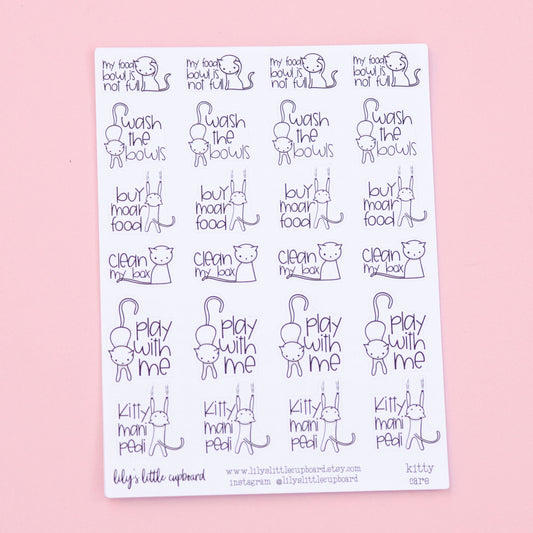 my food my food my food my food
bowl is bowl is bowl is bowl is
not full not full not full not full
wash wash wash wash
the the the the
bowls bowls bowls bowls
buy buy buy buy
moar moar moar moar
food food food food
clean clean clean clean
my box my box my box my box
play play play play
with with with with
me me me me
kitty kitty kitty kitty
mani mani mani mani
pedi pedi pedi pedi
lily's little cupboard
www.lilyslittlecupboard.etsy.com
instagram @lilyslittlecupboard
kitty
care